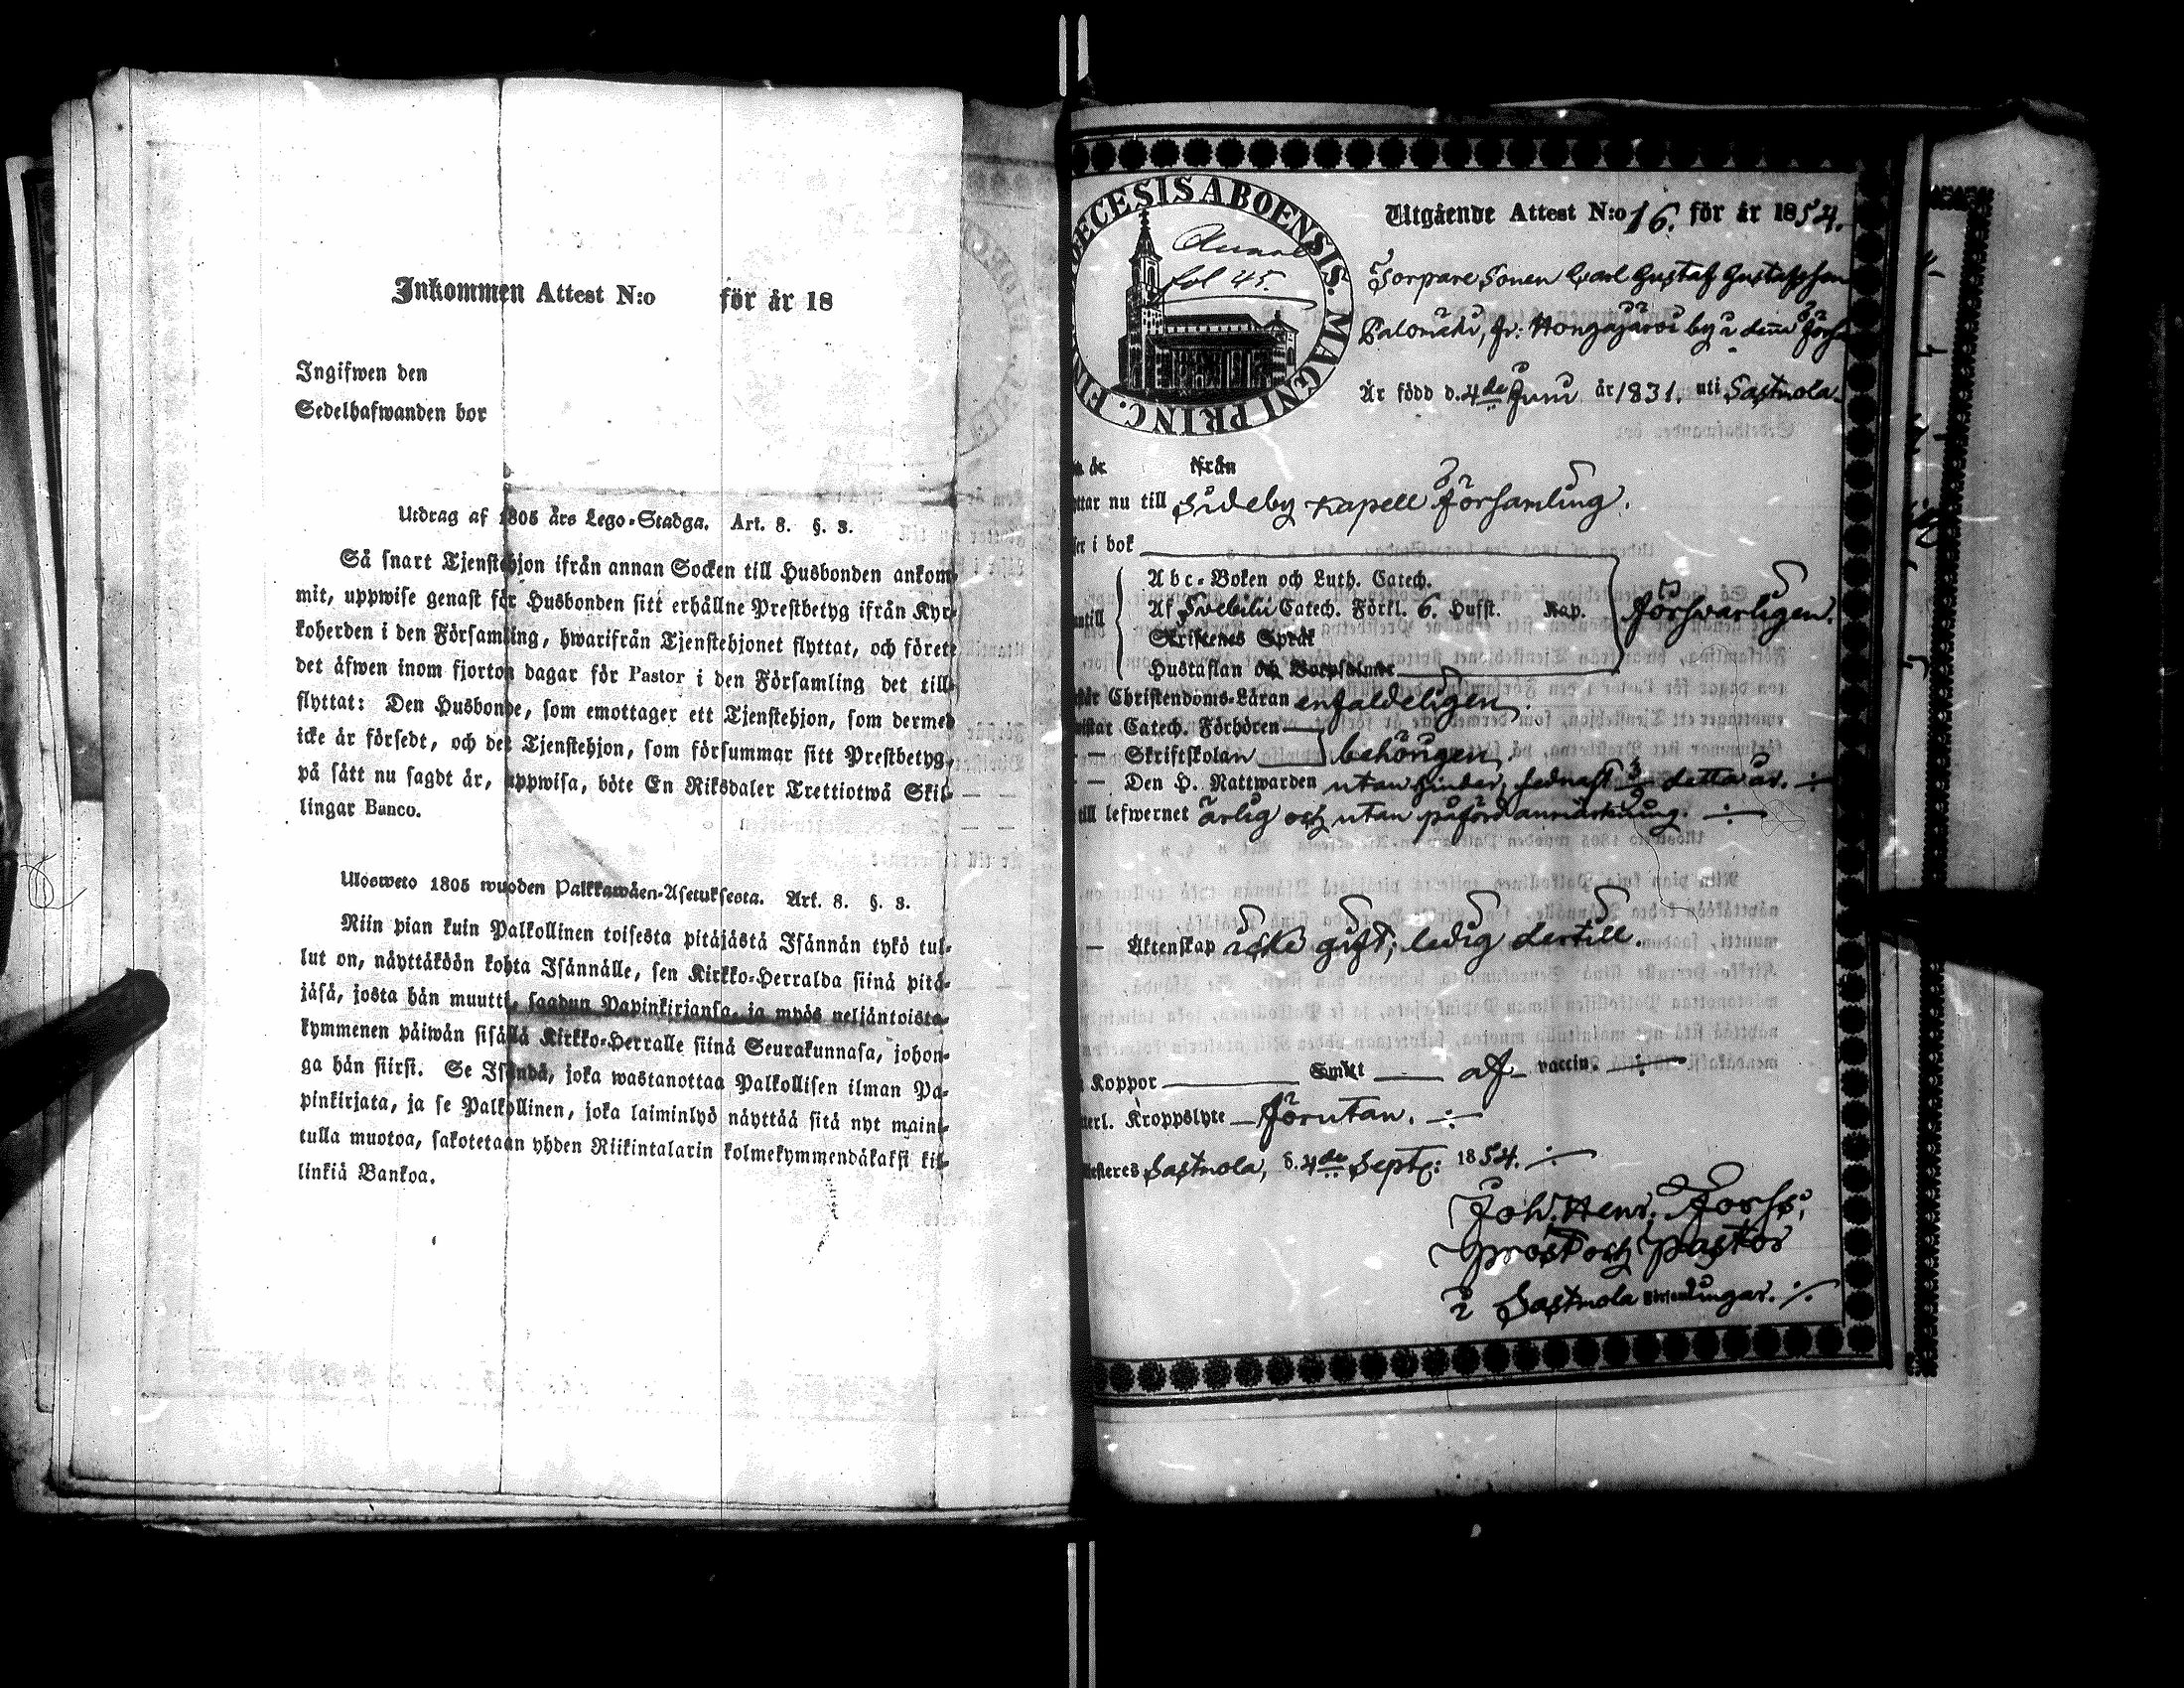 Inkommen Attest N:o för år 18
Ingifwen den
Sedelhafwanden bor
Utdrag af 1805 års Lego-Stadga. Art. 8. §. 3.
Så snart Tjenstehjon ifrån annan Socken till Husbonden ankom-
mit, uppwise genast för Husbonden sitt erhållne Prestbetyg ifrån Kyr-
koherden i den Församling, hwarifrån Tjenstehjonet flyttat, och förete
det äfwen inom fjorton dagar för Pastor i den Församling det till-
flyttat: Den Husbonde, som emottager ett Tjenstehjon, som dermed
icke är försedt, och det Tjenstehjon, som försummar sitt Prestbetyg,
på sätt nu sagdt är, uppwisa, böte En Riksdaler Trettiotwå Skil-
lingar Banco.
Ulosweto 1805 wuoden Palkkawäen-Asetuksesta. Art. 8. §. 3.
Niin pian kuin Palkollinen toisesta pitäjästä Isännän tykö tul-
lut on, näyttäköön kohta Isännälle, sen Kirkko-Herralda siinä pitä-
jäsä, josta hän muutti, saadun Papinkirjansa, ja myös neljäntoista-
kymmenen päiwän sisällä Kirkko-Herralle siinä Seurakunnasa, johon-
ga hän siirsi. Se Isändä, joka wastanottaa Palkollisen ilman Pa-
pinkirjata, ja se Palkollinen, joka laiminlyö näyttää sitä nyt maini-
tulla muotoa, sakotetaan yhden Riikintalarin kolmekymmendäkaksi kil-
linkiä Bankoa.
ECESIS ABOENSIS. MAGNI PRINC. FIN
fol 45.
Utgående Attest N:o 16. för år 1854.
Torpare Sonen Carl Gustaf Gustafsson
Palomäki, fr: Hongajärvi by i denna Förs
Är född d. 4de Juni år 1831. uti Sastmola.
år ifrån
ttar nu till Sideby Kapell Församling.
ser i bok
Abc-Boken och Luth. Catech.
Af Svebilii Catech. Förkl. 6. Hufst. Kap.
utantill försvarligen.
Skriftenes Språk
Hustaflan och Botpsalmer
står Christendoms-Läran enfaldeligen.
wistar Catech. Förhören
— Skriftskolan behörigen,
— — Den H. Nattwarden utan hinder, sednast detta år.
till lefwernet ärlig och utan påförd anmärkning.
— Äktenskap icke gift; ledig dertill.
Koppor Smitt af vaccin.
terl. Kroppslyte förutan.
Sastmola, d. 4de Sept: 1854.
Joh. Henr. Forss,
Prost och Pastor
i Sastmola Församlingar.